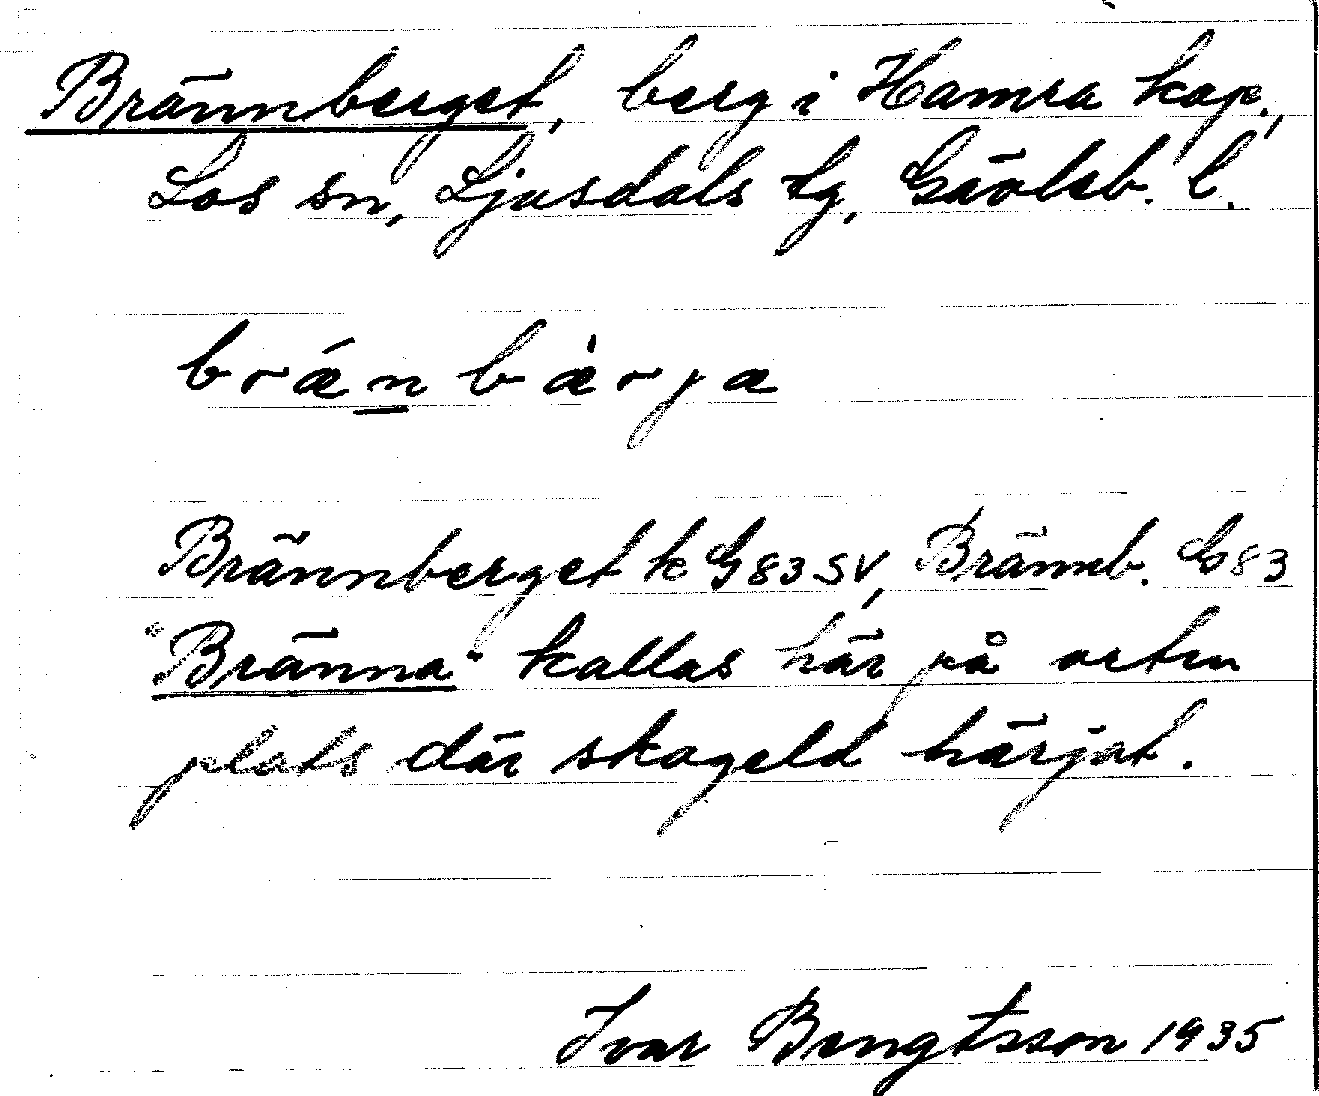 Brännberget, berg i Hamra kap.,
Los sn, Ljusdals tg, Gävleb. l.
brǽn bæ̀rja
Brännberget k G 83 SV, Brännb. G 83
"Bränna" kallas här på orten
plats där skogeld härjat.
Ivar Bengtsson 1935